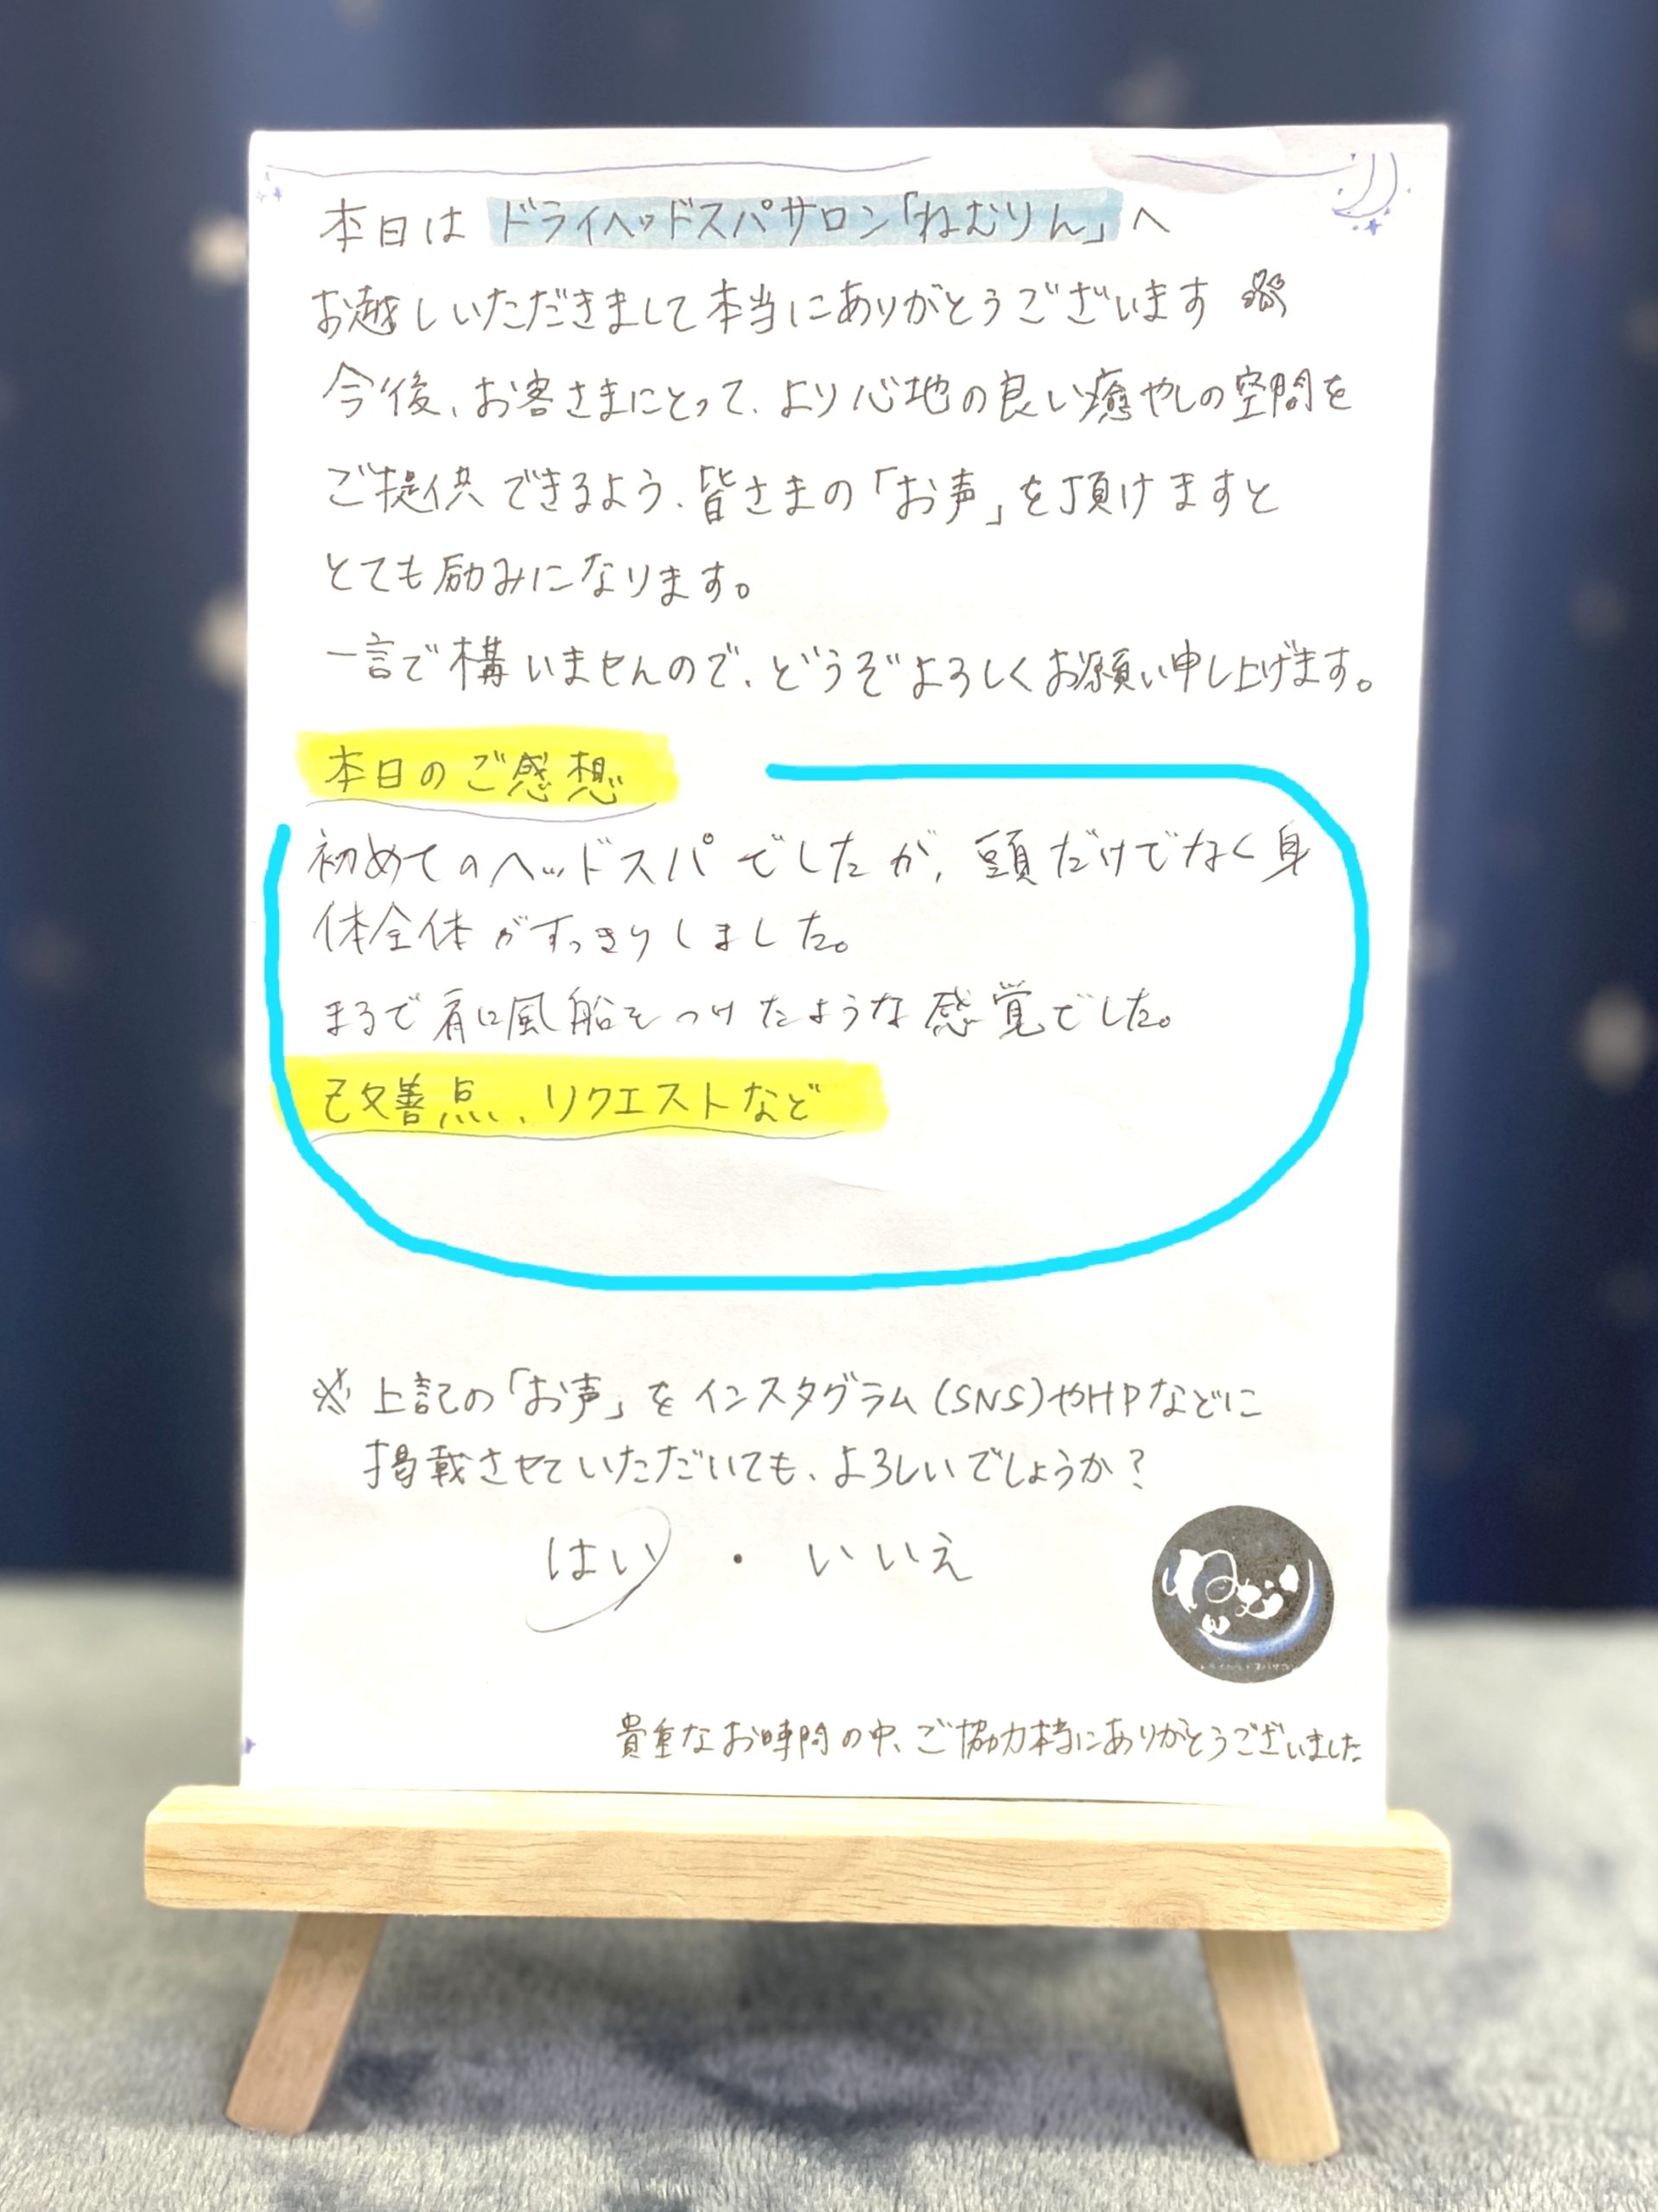 本日は ドライヘッドスパサロン「ねむりん」へ
お越しいただきまして本当にありがとうございます
今後、お客さまにとって、より心地の良い癒やしの空間を
ご提供できるよう、皆さまの「お声」を頂けますと
とても励みになります。
一言で構いませんので、どうぞよろしくお願い申し上げます。
本日のご感想
初めてのヘッドスパでしたが、頭だけでなく身
体全体がすっきりしました。
まるで肩に風船をつけたような感覚でした。
改善点、リクエストなど
※上記の「お声」をインスタグラム(SNS)やHPなどに
掲載させていただいても、よろしいでしょうか?
はい ・ いいえ
ねむりん
ドライヘッドスパサロン
貴重なお時間の中、ご協力本当にありがとうございました